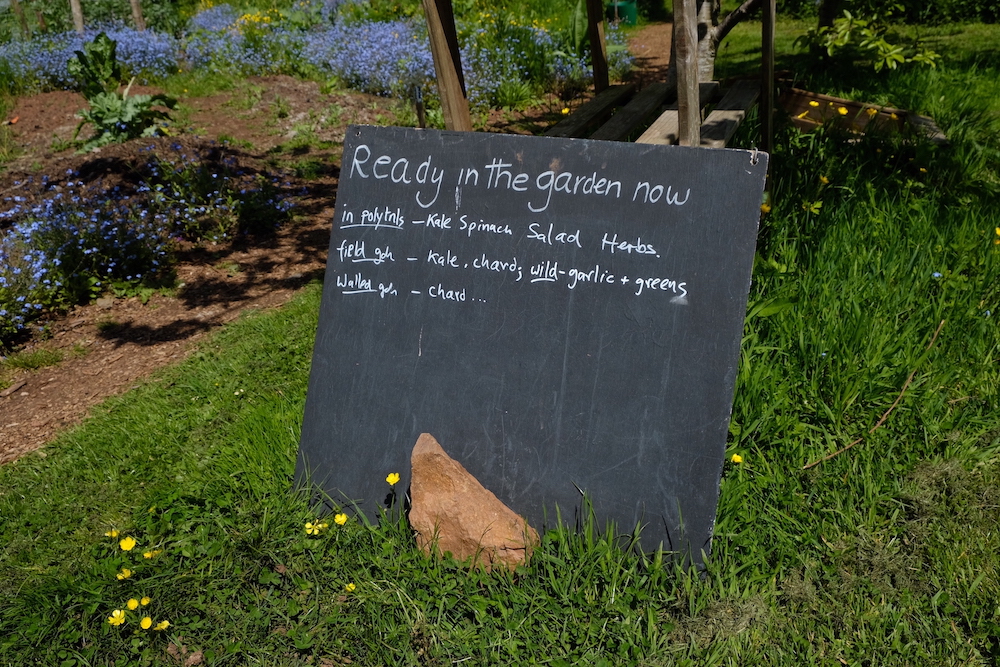 Ready in the garden now
in polytnls - Kale Spinach Salad Herbs.
field gdn - Kale, chard, wild-garlic + greens
Walled gdn - Chard ...